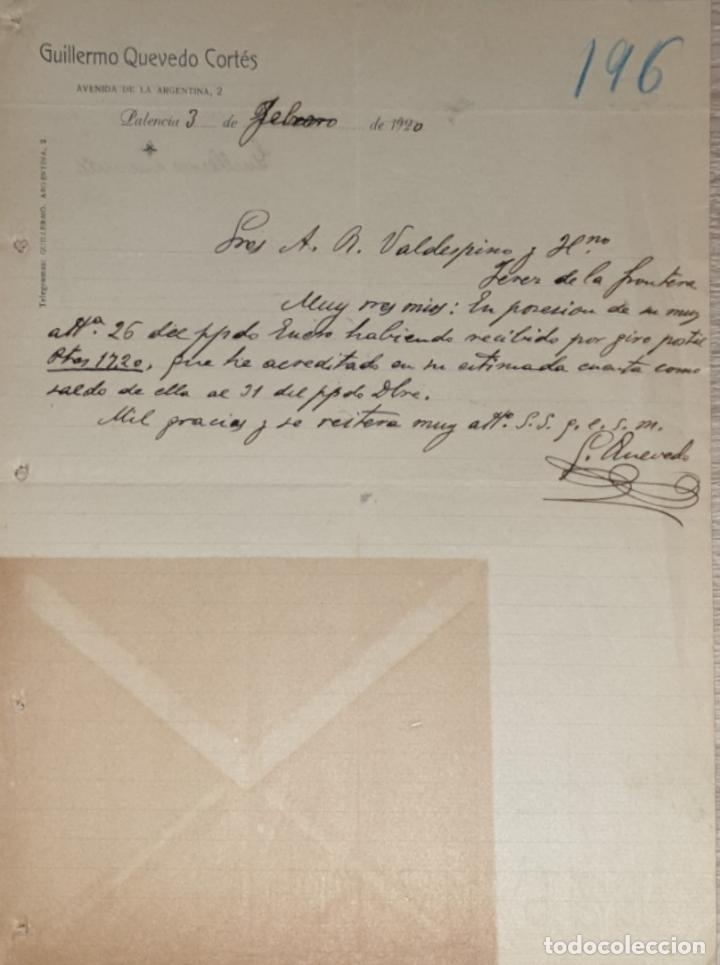 Guillermo Quevedo Cortés
196
AVENIDA DE LA ARGENTINA, 2
Palencia 3 de Febrero de 1920
Telegramas: GUILLERMO, ARGENTINA, 2
Sres A. R. Valdespino y Hno
Jerez de la frontera
Muy sres mios: En posesion de su muy
atta. 26 del ppdo Enero habiendo recibido por giro postal
Ptas 17,20, que he acreditado en su estimada cuenta como
saldo de ella al 31 del ppdo Dbre.
Mil gracias y se reitera muy atto. S. S. q. e. s. m.
G. Quevedo
todocoleccion